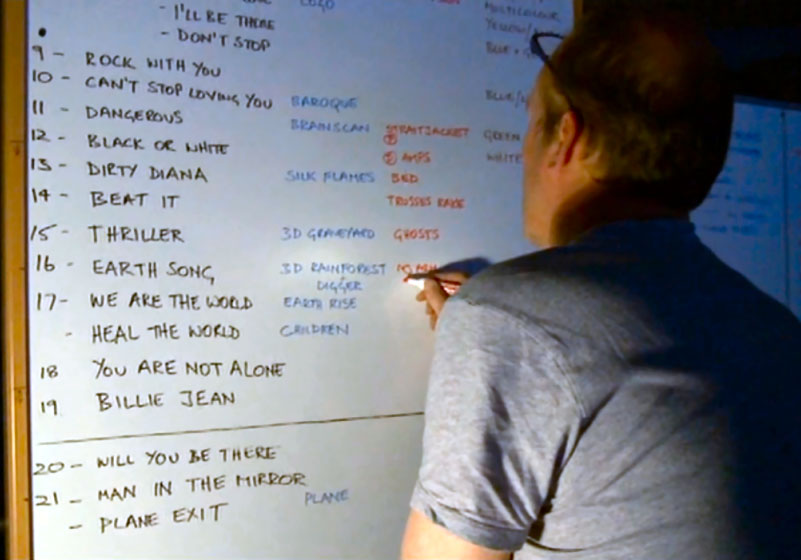 LOGO
- I'LL BE THERE
- DON'T STOP
MULTICOLOUR
YELLOW/
BLUE +
9 - ROCK WITH YOU
10 - CAN'T STOP LOVING YOU BAROQUE BLUE/
11 - DANGEROUS BRAINSCAN STRAITJACKET GREEN
12 - BLACK OR WHITE AMPS WHITE
13 - DIRTY DIANA SILK FLAMES BED
14 - BEAT IT TRUSSES RAKE
15 - THRILLER 3D GRAVEYARD GHOSTS
16 - EARTH SONG 3D RAINFOREST
DIGGER
17 - WE ARE THE WORLD EARTH RISE
- HEAL THE WORLD CHILDREN
18 YOU ARE NOT ALONE
19 BILLIE JEAN
20 - WILL YOU BE THERE
21 - MAN IN THE MIRROR PLANE
- PLANE EXIT